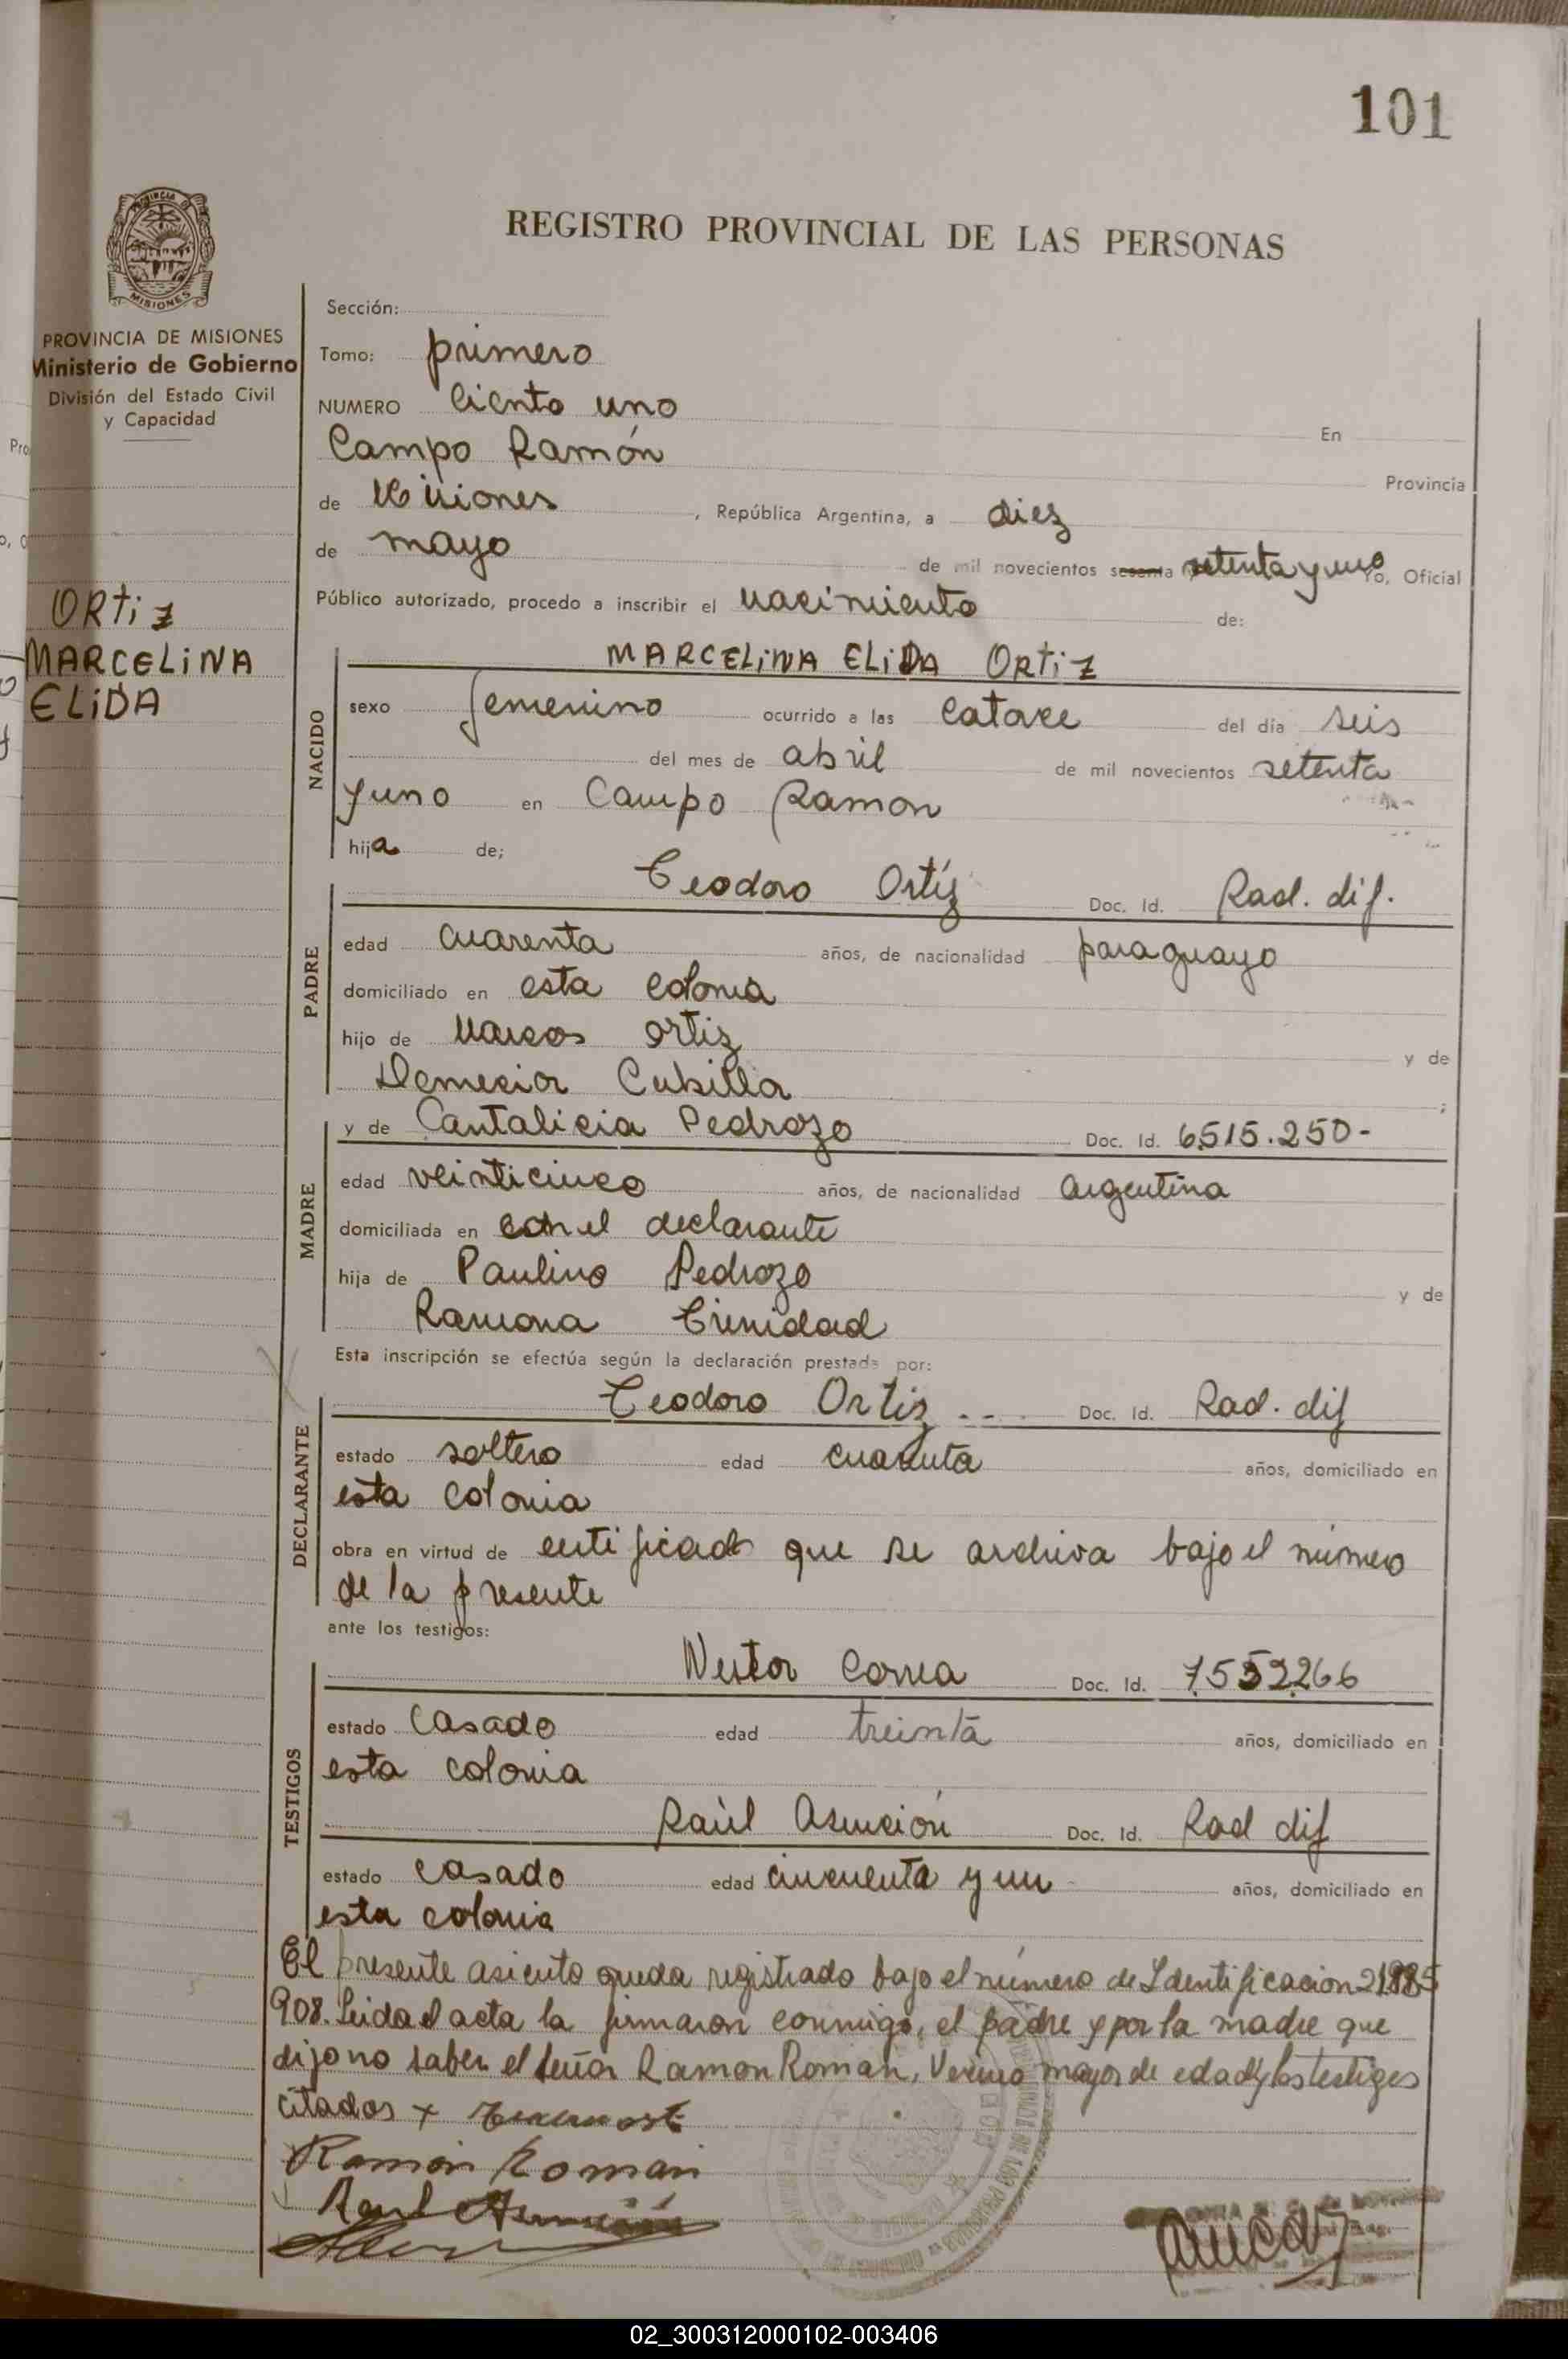 101
REGISTRO PROVINCIAL DE LAS PERSONAS
PROVINCIA DE MISIONES
Ministerio de Gobierno
División del Estado Civil
y Capacidad
ORTiZ
MARCELiNA
ELiDA
Sección:
Tomo: primero
NUMERO Ciento uno En
Campo Ramón Provincia
de Misiones, República Argentina, a diez
de mayo de mil novecientos sesenta setenta y uno yo, Oficial
Público autorizado, procedo a inscribir el nacimiento de:
NACIDO
MARCELiNA ELiDA ORTiZ
sexo femenino ocurrido a las catorce del día seis
del mes de abril de mil novecientos setenta
y uno en Campo Ramon
hija de;
PADRE
Teodoro Ortíz Doc. Id. Rad. dif.
edad cuarenta años, de nacionalidad paraguayo
domiciliado en esta colonia
hijo de Marcos Ortiz y de
Demecia Cubilla ;
MADRE
y de Cantalicia Pedrozo Doc. Id. 6515.250-
edad veinticinco años, de nacionalidad argentina
domiciliada en con el declarante
hija de Paulino Pedrozo y de
Ramona Trinidad
Esta inscripción se efectúa según la declaración prestada por:
DECLARANTE
Teodoro Ortiz Doc. Id. Rad. dif
estado soltero edad cuarenta años, domiciliado en
esta colonia
obra en virtud de certificado que se archiva bajo el número
de la presente
ante los testigos:
TESTIGOS
Nestor Correa Doc. Id. 7.552.266
estado casado edad treinta años, domiciliado en
esta colonia
Raúl Asunción Doc. Id. Rad dif
estado casado edad cincuenta y un años, domiciliado en
esta colonia
El presente asiento queda registrado bajo el número de Identificacion 21.885
908. Leida el acta la firmaron conmigo, el padre y por la madre que
dijo no saber el señor Ramon Roman, Vecino mayor de edad y los testigos
citados +
Ramón Roman
Raul Asunción
02_300312000102-003406